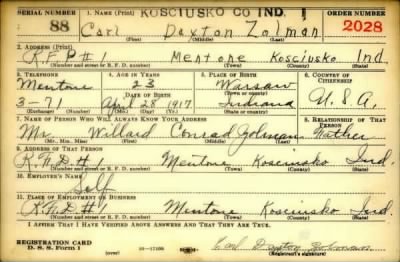 SERIAL NUMBER 1. NAME (Print) KOSCIUSKO CO IND. 1 ORDER NUMBER
88 Carl Dexton Zolman 2028
(First) (Middle) (Last)
2. ADDRESS (Print)
R.F.D #1 Mentone Kosciusko Ind.
(Number and street or R. F. D. number) (Town) (County) (State)
3. TELEPHONE 4. AGE IN YEARS 5. PLACE OF BIRTH 6. COUNTRY OF CITIZENSHIP
Mentone 23 Warsaw
DATE OF BIRTH (Town or county)
3-71 April 28 1917 Indiana U.S.A.
(Exchange) (Number) (Mo.) (Day) (Yr.) (State or country)
7. NAME OF PERSON WHO WILL ALWAYS KNOW YOUR ADDRESS 8. RELATIONSHIP OF THAT PERSON
Mr. Willard Conrad Zolman Father
(Mr., Mrs., Miss) (First) (Middle) (Last)
9. ADDRESS OF THAT PERSON
R.F.D.#1 Mentone Kosciusko Ind.
(Number and street or R. F. D. number) (Town) (County) (State)
10. EMPLOYER'S NAME
Self
11. PLACE OF EMPLOYMENT OR BUSINESS
R.F.D.#1 Mentone Kosciusko Ind.
(Number and street or R. F. D. number) (Town) (County) (State)
I AFFIRM THAT I HAVE VERIFIED ABOVE ANSWERS AND THAT THEY ARE TRUE.
REGISTRATION CARD
D. S. S. Form 1 Carl Dexton Zolman
(Registrant's signature)